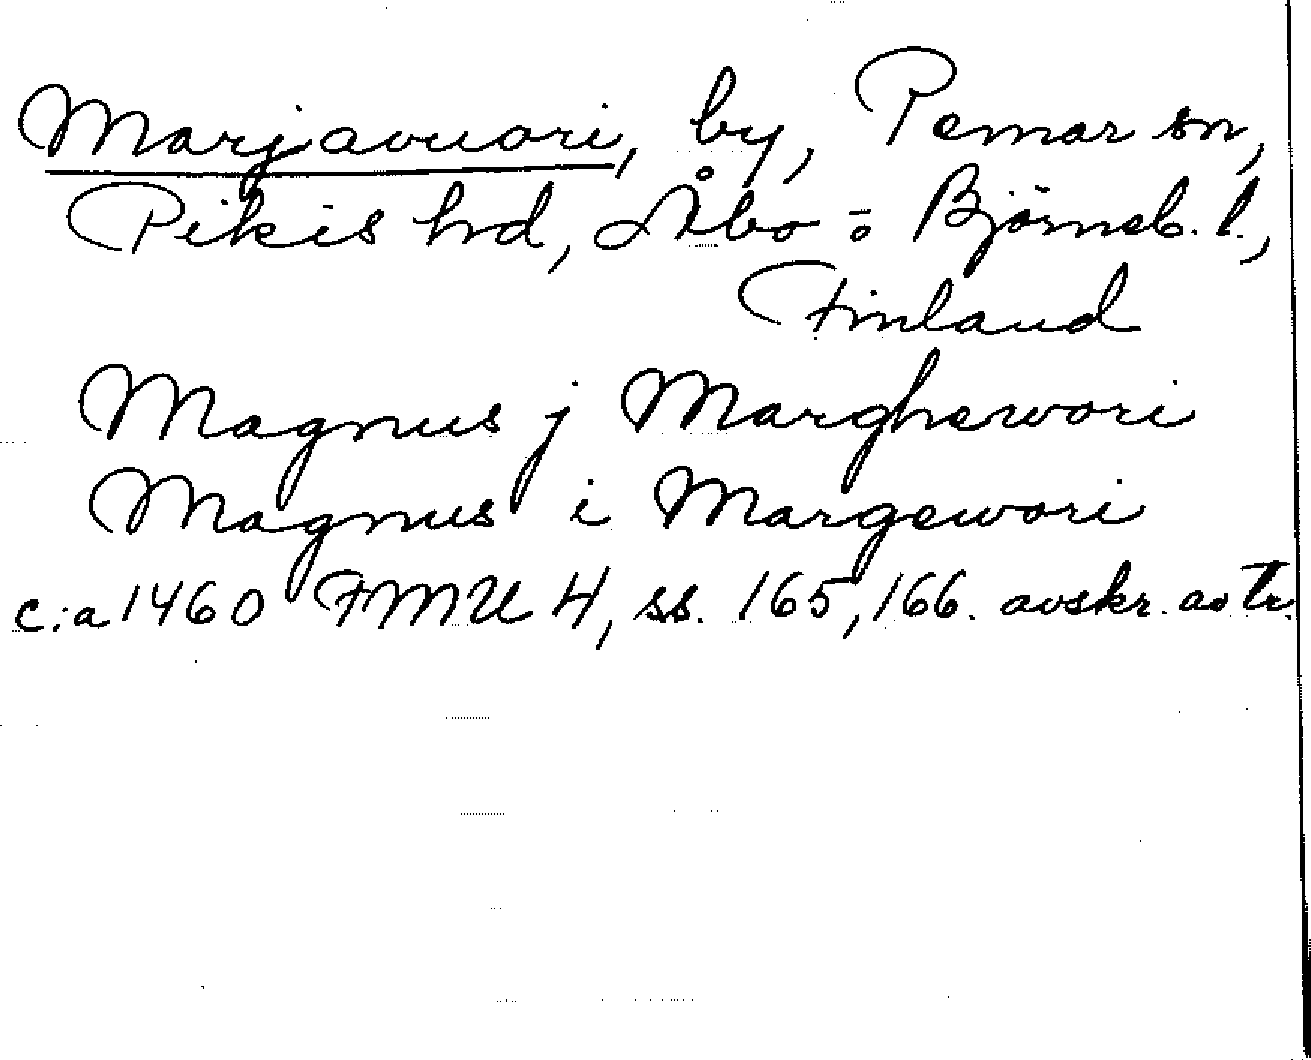 Marjavuori, by, Pemar sn,
Pikis hd, Åbo o. Björneb. l.,
Finland
Magnus j Marghewori
Magnus i Margewori
c:a 1460 FMU 4, ss. 165, 166. avskr. av tr.